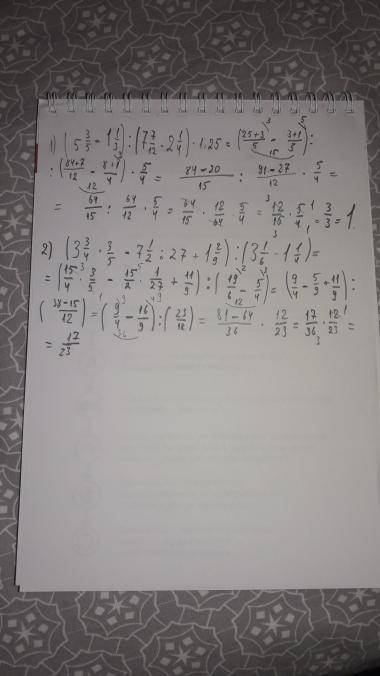 1) (5 3/5 - 1 1/3) : (7 7/12 - 2 1/4) · 1.25 = (25+3/5 - 3+1/3) :
: (84+7/12 - 8+1/4) · 5/4 = 84-20/15 : 91-27/12 · 5/4 =
= 64/15 : 64/12 · 5/4 = 64/15 · 12/64 · 5/4 = 12/15 · 5/4 = 3/3 = 1
2) (3 3/4 · 3/5 - 7 1/2 : 27 + 1 2/9) : (3 1/6 - 1 1/4) =
= (15/4 · 3/5 - 15/2 · 1/27 + 11/9) : (19/6 - 5/4) = (9/4 - 5/9 + 11/9) :
(38-15/12) = (9/4 - 16/9) : (23/12) = 81-64/36 · 12/23 = 17/36 · 12/23 =
= 17/23